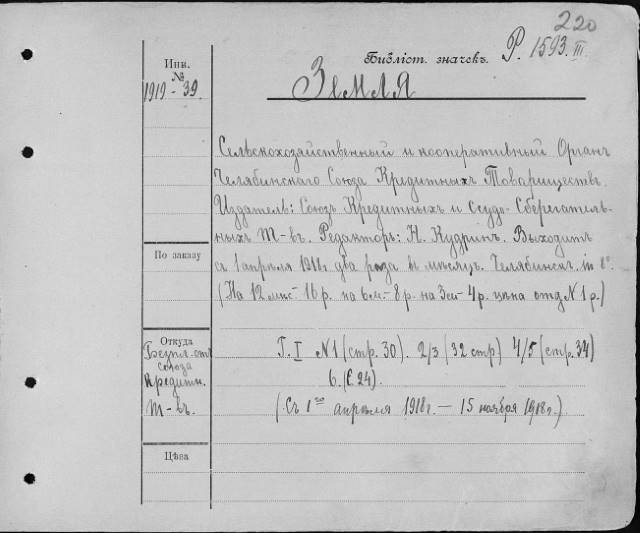 220
Инв.
№
1919 - 39.
Библіот. значекъ.
Р. 1593. III
Земля
Сельскохозяйственный и кооперативный Органъ
Челябинскаго Союза Кредитныхъ Товариществъ.
Издатель: Союзъ Кредитныхъ и Ссудо-Сберегатель-
ныхъ Т-въ. Редакторъ: Н. Кудринъ. Выходитъ
съ 1 апрѣля 1918г. два раза въ мѣсяцъ. Челябинск. in 8°.
(На 12 мѣс - 16 р. на 6 м - 8 р. на 3 м - 4 р. цѣна отд. N 1 р.)
По заказу
Откуда
Безпл. отъ
союза
Кредитн.
Т-въ.
Г. I N1 (стр. 30). 2/3 (32 стр) 4/5 (стр. 34)
6. (с. 24).
(Съ 1го апрѣля 1918г. — 15 ноября 1918г.)
Цѣна